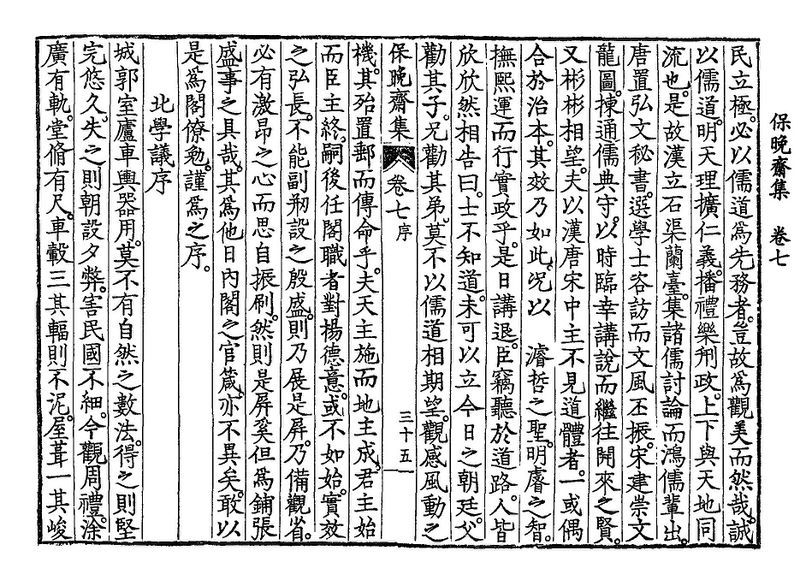 保晩齋集 卷七
民立極。必以儒道爲先務者。豈故爲觀美而然哉。誠
以儒道。明天理擴仁義。播禮樂刑政。上下與天地同
流也。是故漢立石渠蘭臺。集諸儒討論而鴻儒輩出。
唐置弘文秘書。選學士咨訪而文風丕振。宋建崇文
龍圖。揀通儒典守。以時臨幸講說而繼往開來之賢。
又彬彬相望。夫以漢唐宋中主不見道體者。一或偶
合於治本。其效乃如此。况以 濬哲之聖。明睿之智。
撫熙運而行實政乎。是日講退。臣竊聽於道路。人皆
欣欣然相告曰。士不知道。未可以立今日之朝廷。父
勸其子。兄勸其弟。莫不以儒道相期望。觀感風動之
保晩齋集 卷七 序 三十五
機。其殆置郵而傳命乎。夫天主施而地主成。君主始
而臣主終。嗣後任閣職者對揚德意。或不如始。實效
之弘長。不能副刱設之殷盛。則乃展是屛。乃備觀省。
必有激昂之心而思自振刷。然則是屛奚但爲鋪張
盛事之具哉。其爲他日內閣之官箴。亦不異矣。敢以
是爲閣僚勉。謹爲之序。
北學議序
城郭室廬車輿器用。莫不有自然之數法。得之則堅
完悠久。失之則朝設夕弊。害民國不細。今觀周禮。涂
廣有軌。堂脩有尺。車轂三其輻則不泥。屋葺一其峻